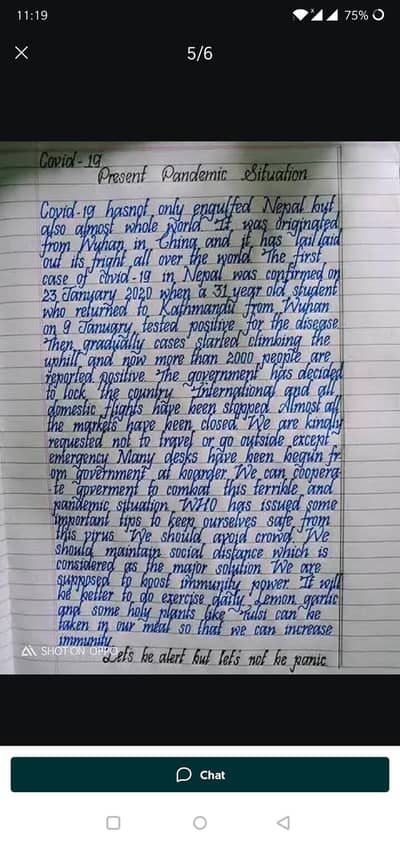 11:19
75%
5/6
Covid-19
Present Pandemic Situation
Covid-19 hasnot only engulfed Nepal but
also almost whole world. It was originated
from Wuhan in China and it has laid
out its fright all over the world. The first
case of Covid-19 in Nepal was confirmed on
23 January 2020 when a 31 year old student
who returned to Kathmandu from Wuhan
on 9 January, tested positive for the disease.
Then, gradually cases started climbing the
uphill and now more than 2000 people are
reported positive. The government has decided
to lock the country. International and all
domestic flights have been stopped. Almost all
the markets have been closed. We are kindly
requested not to travel or go outside except
emergency. Many desks have been begun fr
om government at boarder. We can coopera-
te goverment to combat this terrible and
pandemic situation. WHO has issued some
important tips to keep ourselves safe from
this virus. We should avoid crowd. We
should maintain social distance which is
considered as the major solution. We are
supposed to boost immunity power. It will
be better to do exercise daily. Lemon, garlic
and some holy plants like Tulsi can be
taken in our meal so that we can increase
immunity.
SHOT ON OPPO
Let's be alert but let's not be panic
Chat